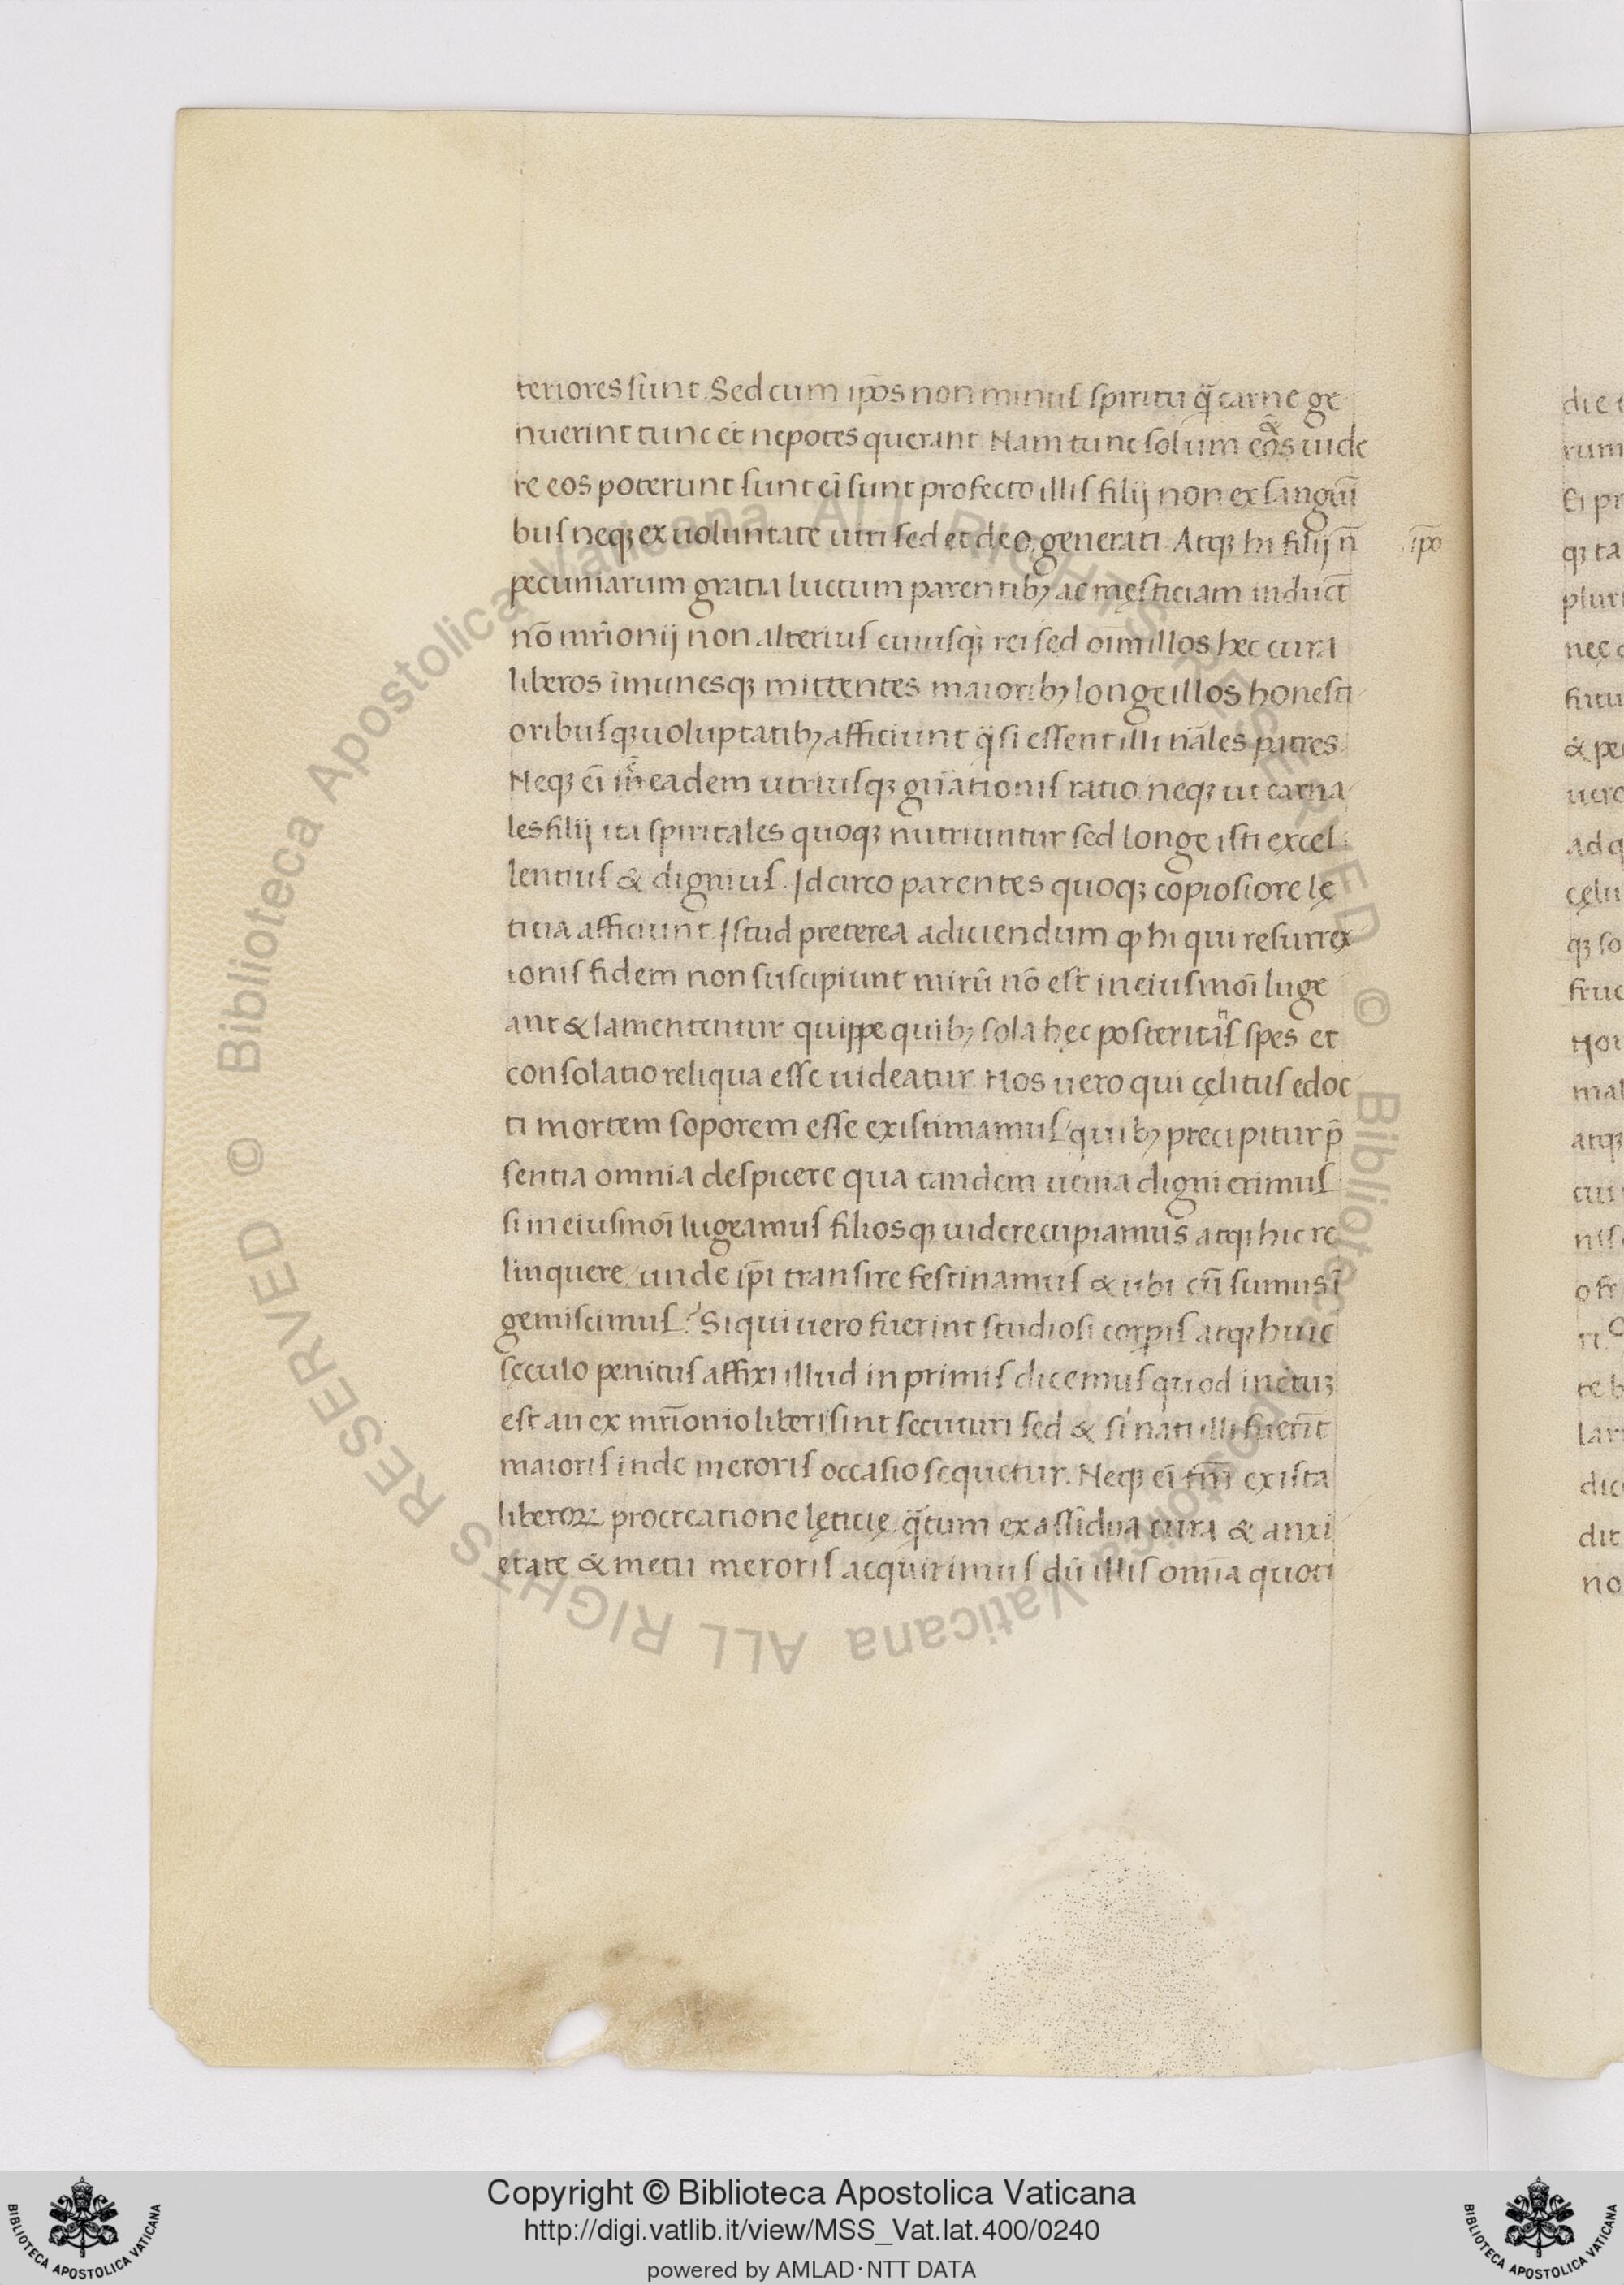 teriores sunt. Sed cum ip̄os non minus spiritu q̃ carne ge
nuerint tunc et nepotes querant. Nam tunc solum eos uide
re eos poterunt sunt ei̅ sunt profecto illis filij non ex sangui̅
bus neqꝫ ex uoluntate uiri sed et deo generati. Atqꝫ hi filij n̅
ip̅o
pecuniarum gratia luctum parentibꝫ ac męsticiam induc̅t
no̅ mr̅ionij non alterius cuiusqꝫ rei sed oi̅m illos hec cura
liberos i̅munesqꝫ mittentes maioribꝫ longe illos honesti
oribusqꝫ uoluptatibꝫ afficiunt q̃ si essent illi na̅les patres.
Neqꝫ ei̅ eadem utriusqꝫ gn̅ationis ratio neqꝫ ut carna
les filij ita spiritales quoqꝫ nutriuntur sed longe isti excel
lentius & dignius. Idcirco parentes quoqꝫ copiosiore lę
titia afficiunt. Istud preterea adiciendum ꝙ hi qui resurrex
ionis fidem non suscipiunt miru̅ no̅ est in eiusmoi̅ luge
ant & lamententur quippe quibꝫ sola hęc posterita̅s spes et
consolatio reliqua esse uideatur. Nos uero qui cęlitus edoc
ti mortem soporem esse existimamus quibꝫ precipitur p̅
sentia omnia despicere qua tandem uenia digni erimus
si in eiusmoi̅ lugeamus filiosqꝫ uidere cupiamus atqꝫ hic re
linquere, unde ip̅i transire festinamus & ubi cu̅ sumus i̅
gemiscimus? Si qui uero fuerint studiosi corp̱is atqꝫ huic
sęculo penitus affixi illud in primis dicemus quod incertuꝫ
est an ex mr̅ionio liberi sint secuturi sed & si nati illi fueri̅t
maioris inde meroris occasio sequetur. Neqꝫ ei̅ tm̅ ex ista
liberoꝝ procreatione lęticię q̃tum ex assidua cura & anxi
etate & metu meroris acquirimus du̅ illis omnia quoti
Copyright © Biblioteca Apostolica Vaticana
http://digi.vatlib.it/view/MSS_Vat.lat.400/0240
powered by AMLAD·NTT DATA
BIBLIOTECA APOSTOLICA VATICANA
BIBLIOTECA APOSTOLICA VATICANA
© Biblioteca Apostolica Vaticana ALL RIGHTS RESERVED © Biblioteca Apostolica Vaticana ALL RIGHTS RESERVED